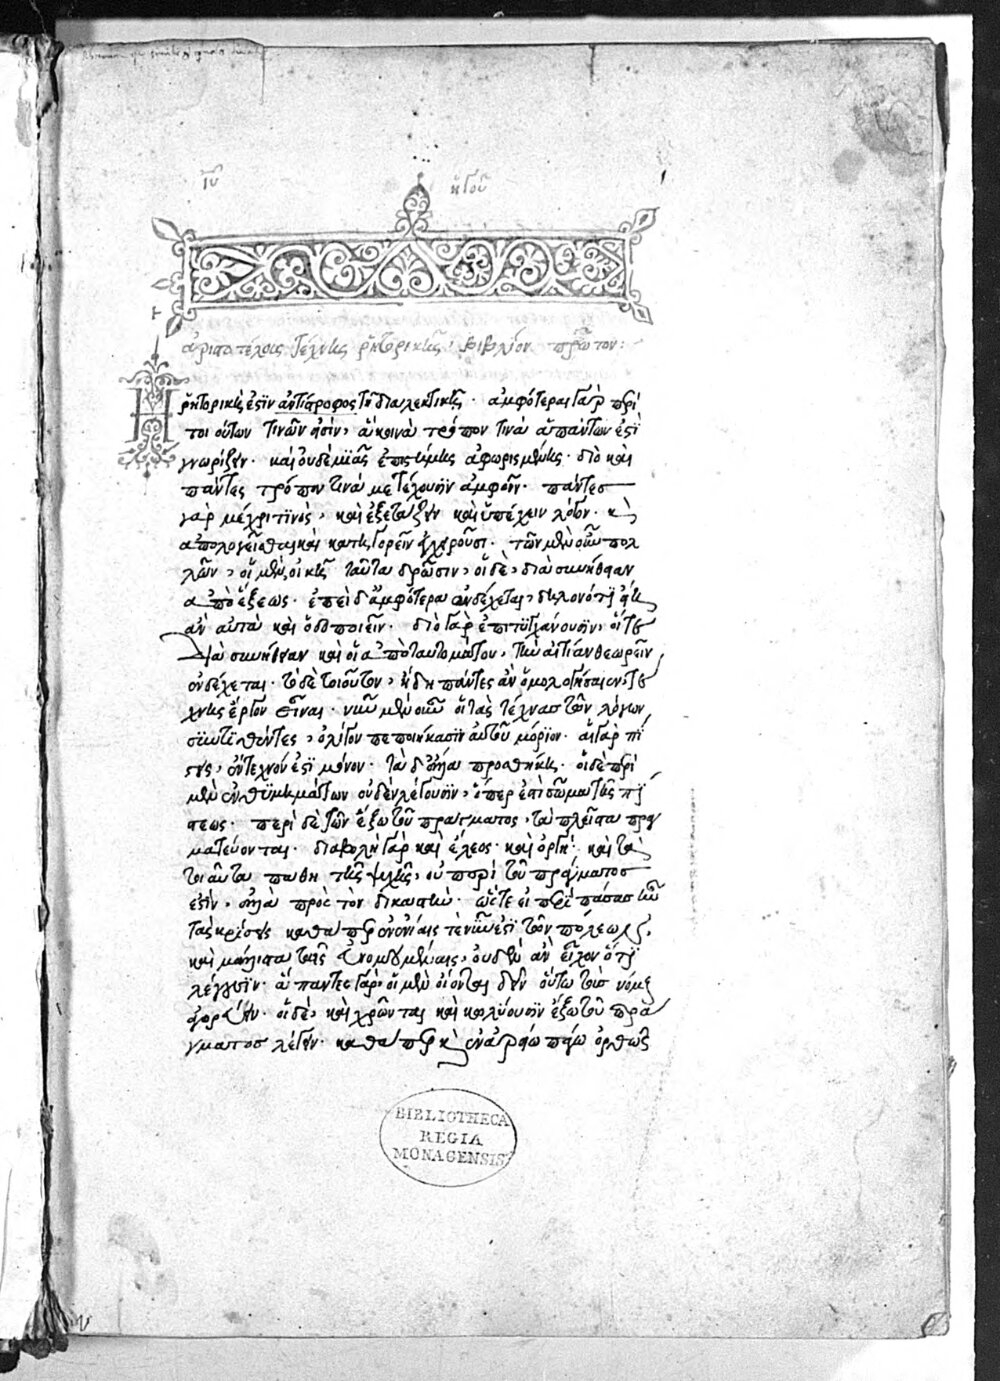 ἀριστοτέλους τέχνης ῥητορικῆς, βιβλίον πρῶτον:
Ἡ ῥητορική ἐστιν ἀντίστροφος τῇ διαλεκτικῇ· ἀμφότεραι γὰρ περὶ
τοιούτων τινῶν εἰσίν, ἃ κοινὰ τρόπον τινὰ ἁπάντων ἐστὶ
γνωρίζειν· καὶ οὐδεμιᾶς ἐπιστήμης ἀφωρισμένης· διὸ καὶ
πάντες τρόπον τινὰ μετέχουσιν ἀμφοῖν· πάντες
γὰρ μέχρι τινὸς, καὶ ἐξετάζειν καὶ ὑπέχειν λόγον· καὶ
ἀπολογεῖσθαι καὶ κατηγορεῖν ἐγχειροῦσι· τῶν μὲν οὖν πολ
λῶν, οἱ μὲν, εἰκῆ ταῦτα δρῶσιν, οἱ δὲ, διὰ συνήθειαν
ἀπὸ ἕξεως· ἐπεὶ δ' ἀμφότερα ἐνδέχεται, δηλονότι εἴη
ἂν αὐτὰ καὶ ὁδοποιεῖν· διὸ γὰρ ἐπιτυγχάνουσιν, οἵ τε
διὰ συνήθειαν καὶ οἱ ἀπὸ ταυτομάτου, τὴν αἰτίαν θεωρεῖν
ἐνδέχεται· τὸ δὲ τοιοῦτον, ἤδη πάντες ἂν ὁμολογήσαιεν, τέ
χνης ἔργον εἶναι· νῦν μὲν οὖν οἱ τὰς τέχνας τῶν λόγων
συντιθέντες, ὀλίγον πεποιήκασιν αὐτοῦ μόριον· αἱ γὰρ πί
στεις, ἔντεχνόν ἐστι μόνον· τὰ δ' ἄλλα προσθῆκαι· οἱ δὲ περὶ
μὲν ἐνθυμημάτων οὐδὲν λέγουσιν, ὅπερ ἐστὶ σῶμα τῆς πί
στεως· περὶ δὲ τῶν ἔξω τοῦ πράγματος, τὰ πλεῖστα πραγ
ματεύονται· διαβολὴ γὰρ καὶ ἔλεος· καὶ ὀργὴ· καὶ τὰ
τοιαῦτα πάθη τῆς ψυχῆς, οὐ περὶ τοῦ πράγματος
ἐστὶν, ἀλλὰ πρὸς τὸν δικαστήν· ὥστε εἰ περὶ πάσας ἦν
τὰς κρίσεις καθάπερ ἐν ἐνίαις τε νῦν ἐστὶ τῶν πόλεων,
καὶ μάλιστα ταῖς εὐνομουμέναις, οὐδὲν ἂν εἶχον ὅ τι
λέγωσιν· ἅπαντες γὰρ, οἱ μὲν οἴονται δεῖν οὕτω τοὺς νόμους
ἀγορεύειν· οἱ δὲ, καὶ χρῶνται καὶ κωλύουσιν ἔξω τοῦ πρά
γματος λέγειν· καθάπερ καὶ ἐν ἀρείῳ πάγῳ ὀρθῶς
BIBLIOTHECA
REGIA
MONACENSIS